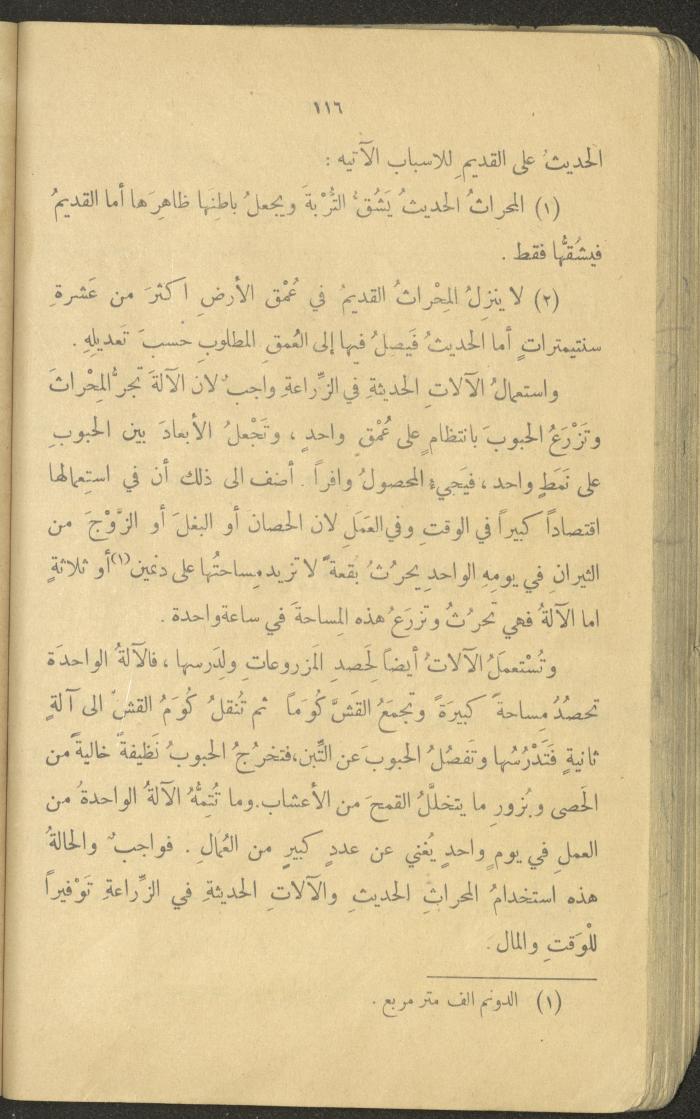 ١١٦
الحديثُ على القديمِ للاسباب الآتيه :
(١) المحراثُ الحديثُ يَشُقُّ التُّرْبةَ ويجعلُ باطِنَها ظاهِرَها أما القديمُ
فيشُقُّها فقط .
(٢) لا ينزِلُ المِحْراثُ القديمُ في عُمْق الأرضِ اكثرَ من عَشرةِ
سنتيمتراتٍ أما الحديثُ فَيصلُ فيها إلى العُمقِ المطلوبِ حسبَ تَعديلِهِ .
واستعمالُ الآلاتِ الحديثةِ في الزِّراعةِ واجبٌ لان الآلةَ تجرُّ المِحْراثَ
وتَزْرَعُ الحبوبَ بانتظامٍ على عُمْقٍ واحدٍ ، وتَجْعلُ الأبعادَ بين الحبوبِ
على نَمَطٍ واحد ، فيَجيءُ المحصولُ وافراً . أضف الى ذلك أن في استِعمالها
اقتصاداً كبيراً في الوقتِ وفي العَمَلِ لان الحصان أو البغلَ أو الزَّوْجَ من
الثيرانِ في يومِهِ الواحدِ يحرُثُ بُقعةً لا تزيد مِساحتُها على دنمين (١) أو ثلاثةٍ
اما الآلةُ فهي تحرُثُ وتزرَعُ هذه المِساحةَ في ساعة واحدة .
وتُسْتعمَلُ الآلاتُ أيضاً لِحَصدِ المَزروعاتِ ولِدَرسها ، فالآلةُ الواحدَة
تحصُدُ مِساحةً كبيرَةً وتجمَعُ القَشَّ كُوَماً ثم تُنقلُ كُوَمُ القشِّ الى آلةٍ
ثانيةٍ فَتَدْرُسُها وتَفصُلُ الحبوبَ عن التِّبن،فتخرُجُ الحبوبُ نَظيفةً خاليةً من
الحَصى وبُزورِ ما يتخلَّلُ القمحَ من الأعشاب.وما تُتِمُّهُ الآلةُ الواحدةُ من
العملِ في يومٍ واحدٍ يُغني عن عددٍ كبيرٍ من العُمالِ . فواجبٌ والحالةُ
هذه استخدامُ المحراثِ الحديثِ والآلاتِ الحديثةِ في الزِّراعةِ تَوْفيراً
للْوَقتِ والمال .
(١) الدونم الف متر مربع .